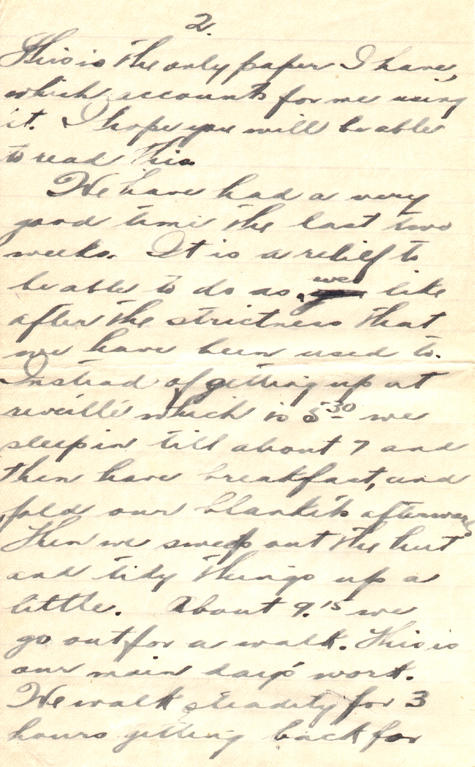 2.
This is the only paper I have,
which accounts for me using
it. I hope you will be able
to read this.
We have had a very
good time the last two
weeks. It is a relief to
be able to do as we like
after the strictness that
we have been used to.
Instead of getting up at
reveillé which is 5 30 we
sleep in till about 7 and
then have breakfast, and
fold our blankets afterwards
Then we sweep out the hut
and tidy things up a
little. About 9.15 we
go out for a walk. This is
our main day's work.
We walk steadily for 3
hours getting back for